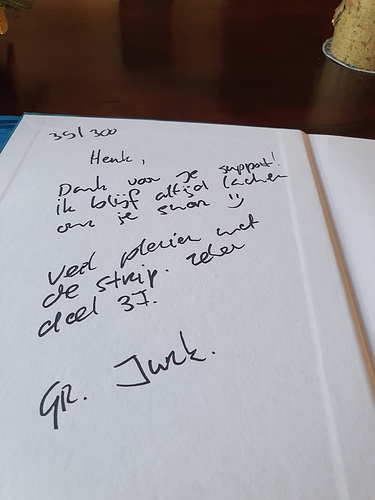 35/300
Henk,
Dank voor je support!
ik blijf altijd lachen
om je
veel plezier met
de strip. zeker
deel 37.
GR. Jurk.